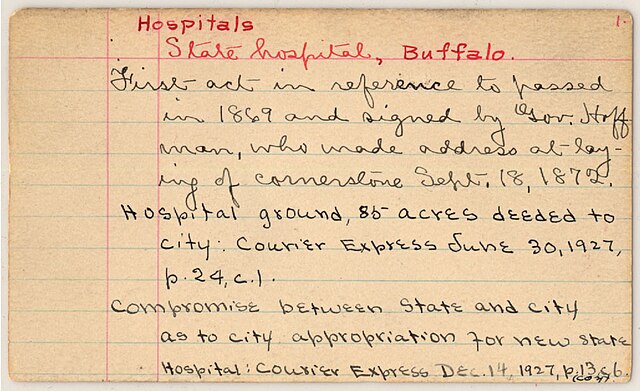 Hospitals 1.
State hospital, Buffalo.
First act in reference to passed
in 1869 and signed by Gov. Hoff-
man, who made address at lay-
ing of cornerstone Sept. 18, 1872.
Hospital ground, 85 acres deeded to
city: Courier Express June 30, 1927,
p. 24, c. 1.
Compromise between State and city
as to city appropriation for new state
Hospital: Courier Express Dec. 14, 1927, p. 13, c. 6.
(cont)